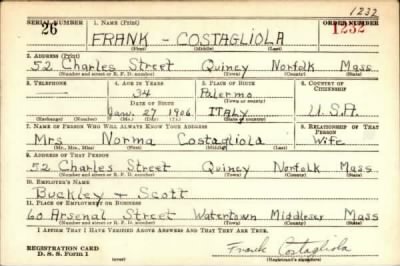 1232
SERIAL NUMBER 1. NAME (Print) ORDER NUMBER
26 FRANK - COSTAGLIOLA 1232
(First) (Middle) (Last)
2. ADDRESS (Print)
52 Charles Street Quincy Norfolk Mass
(Number and street or R. F. D. number) (Town) (County) (State)
3. TELEPHONE 4. AGE IN YEARS 5. PLACE OF BIRTH 6. COUNTRY OF CITIZENSHIP
34 Palermo
DATE OF BIRTH (Town or county)
Jan. 27 1906 ITALY U.S.A.
(Exchange) (Number) (Mo.) (Day) (Yr.) (State or country)
7. NAME OF PERSON WHO WILL ALWAYS KNOW YOUR ADDRESS 8. RELATIONSHIP OF THAT PERSON
Mrs Norma Costagliola Wife
(Mr., Mrs., Miss) (First) (Middle) (Last)
9. ADDRESS OF THAT PERSON
52 Charles Street Quincy Norfolk Mass
(Number and street or R. F. D. number) (Town) (County) (State)
10. EMPLOYER'S NAME
Buckley + Scott
11. PLACE OF EMPLOYMENT OR BUSINESS
60 Arsenal Street Watertown Middlesex Mass
(Number and street or R. F. D. number) (Town) (County) (State)
I AFFIRM THAT I HAVE VERIFIED ABOVE ANSWERS AND THAT THEY ARE TRUE.
REGISTRATION CARD
D. S. S. Form 1 (over) Frank Costagliola
(Registrant's signature)